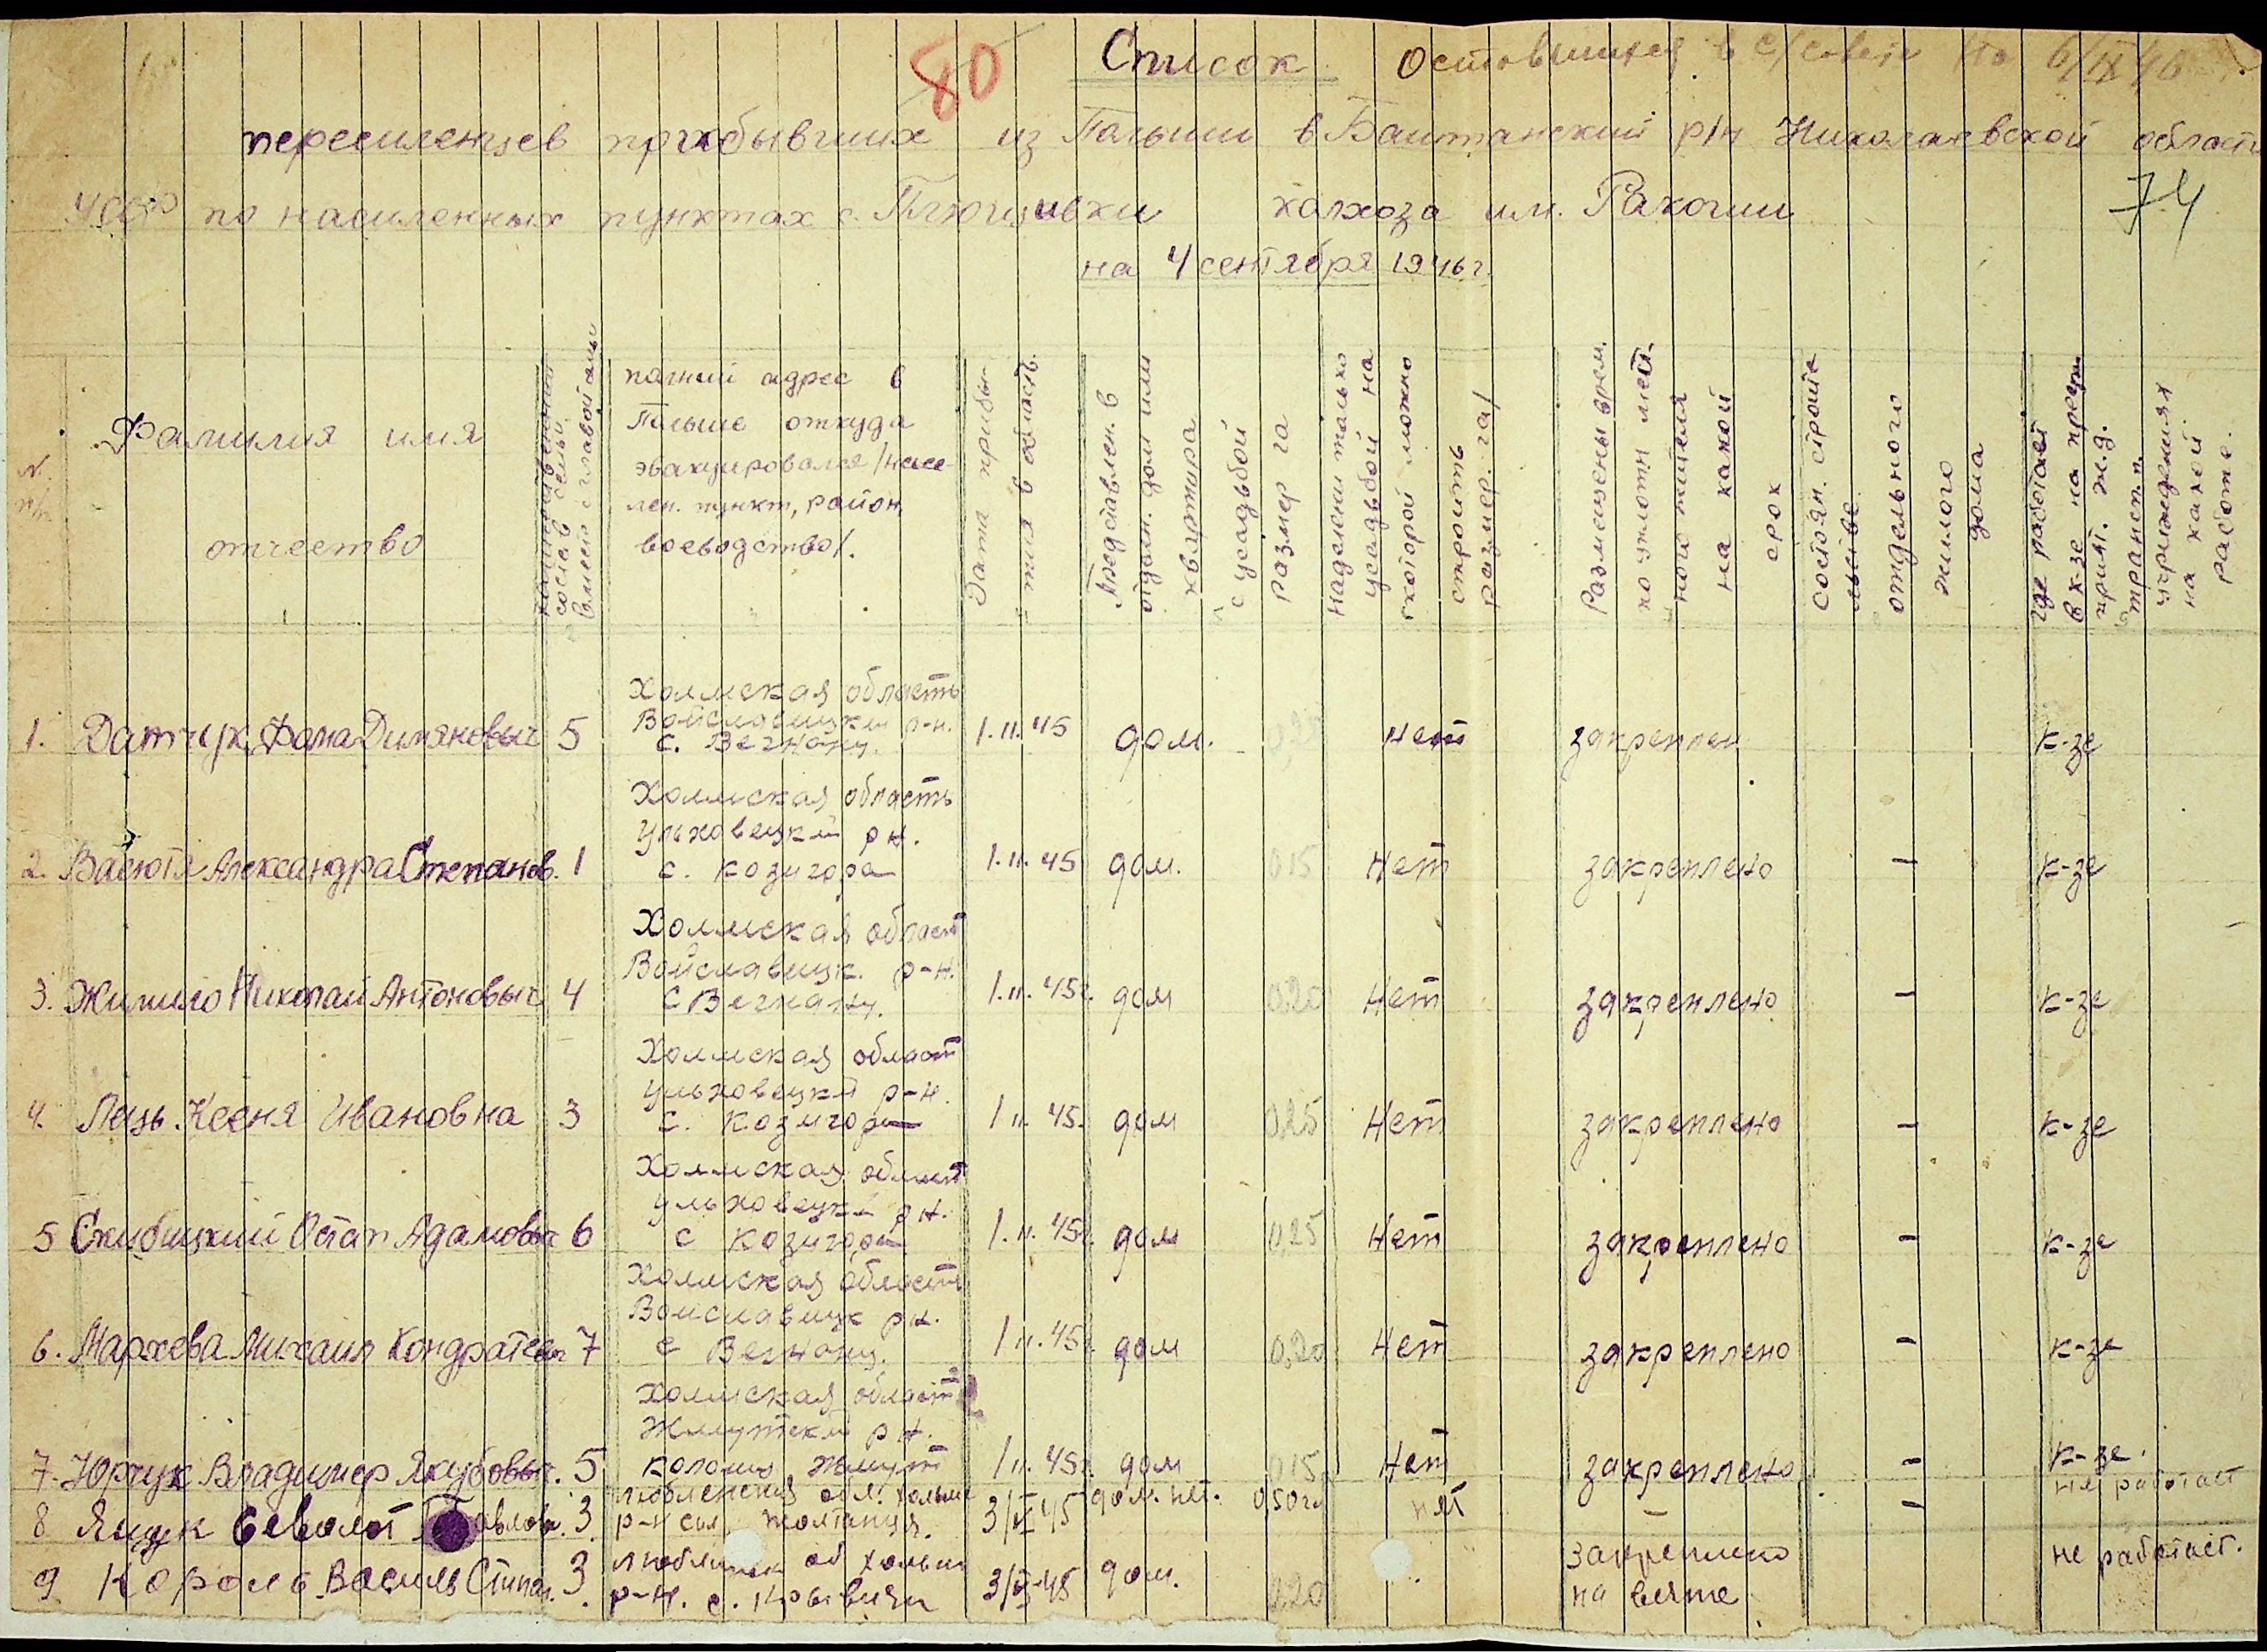 80
Список Оставшихся в с/совете на 6/IX 46
переселенцев прибывших из Польши в Баштанский р/н Николаевской области
УССР по населенных пунктах с. колхоза им. Ракоши
74
на 4 сентября 1946 г.
N. п/п
Фамилия имя отчество
состав семьи вместе с главой семьи
полний адрес в
Польше откуда
эвакуировался /насе-
лен. пункт, район,
воеводство/.
Дата прибы-
тия в область
Предоставлен. в
отдельн. дом или
квартира
с усадьбой
размер га
Наделени только
усадьбой на
которой можно
строить
размер. га/
Размещены врем.
по уплотн мест-
ного жителя
на какой
срок
Состоян. строите
льстве
отдельного
жилого
дома
где работает
в к-зе на предпр
прим. ж.д.
трансп.
учреждениях
на какой
работе.
Холмская область
Войславицкий р-н.
1. Датчук Фома Димянович 5 с. 1.11.45 дом. нет закреплен к-зе
Холмская область
Ульховецкий р н.
2. Васюта Александра Степанов. 1 с. Козигора 1.11.45 дом. 0,15 Нет закреплено — к-зе
Холмская област
Войславицк. р-н.
3. Жимило Николай Антоновыч 4 с 1.11.45г. дом 0,20 Нет закреплено — к-зе
Холмская област
Ульховецкй р-н.
4. Лязь Ксеня Ивановна 3 с. Козигора 1 11.45. дом 0,25 Нет закреплено — к-зе
Холмская област
Ульховецки р н.
5 Скибицкий Остап Адамовыч 6 с Козигора 1.11.45г. дом 0,25 Нет закреплено — к-зе
Холмская область
Войславицк р н.
6. Мархева Михаил Кондратевич 7 с 1 11.45г. дом 0,20 Нет закреплено — к-зе
Холмская област
Жмутский р н.
7. Юрчук Владимер Якубовыч. 5 колония Жмут 1 11.45г. дом 0,15 Нет закреплено — к-зе.
Люблинская обл. Холмс не работает
8 Ящук Павлов. 3 р-н сел. Жолтанця. 3/X 45 дом. нет. 0,50 га нят — —
Люблинск об Холмс закреплено не работает.
9 Король Василь Степан. 3. р-н. с. 3/X-45 дом. 0,20 на